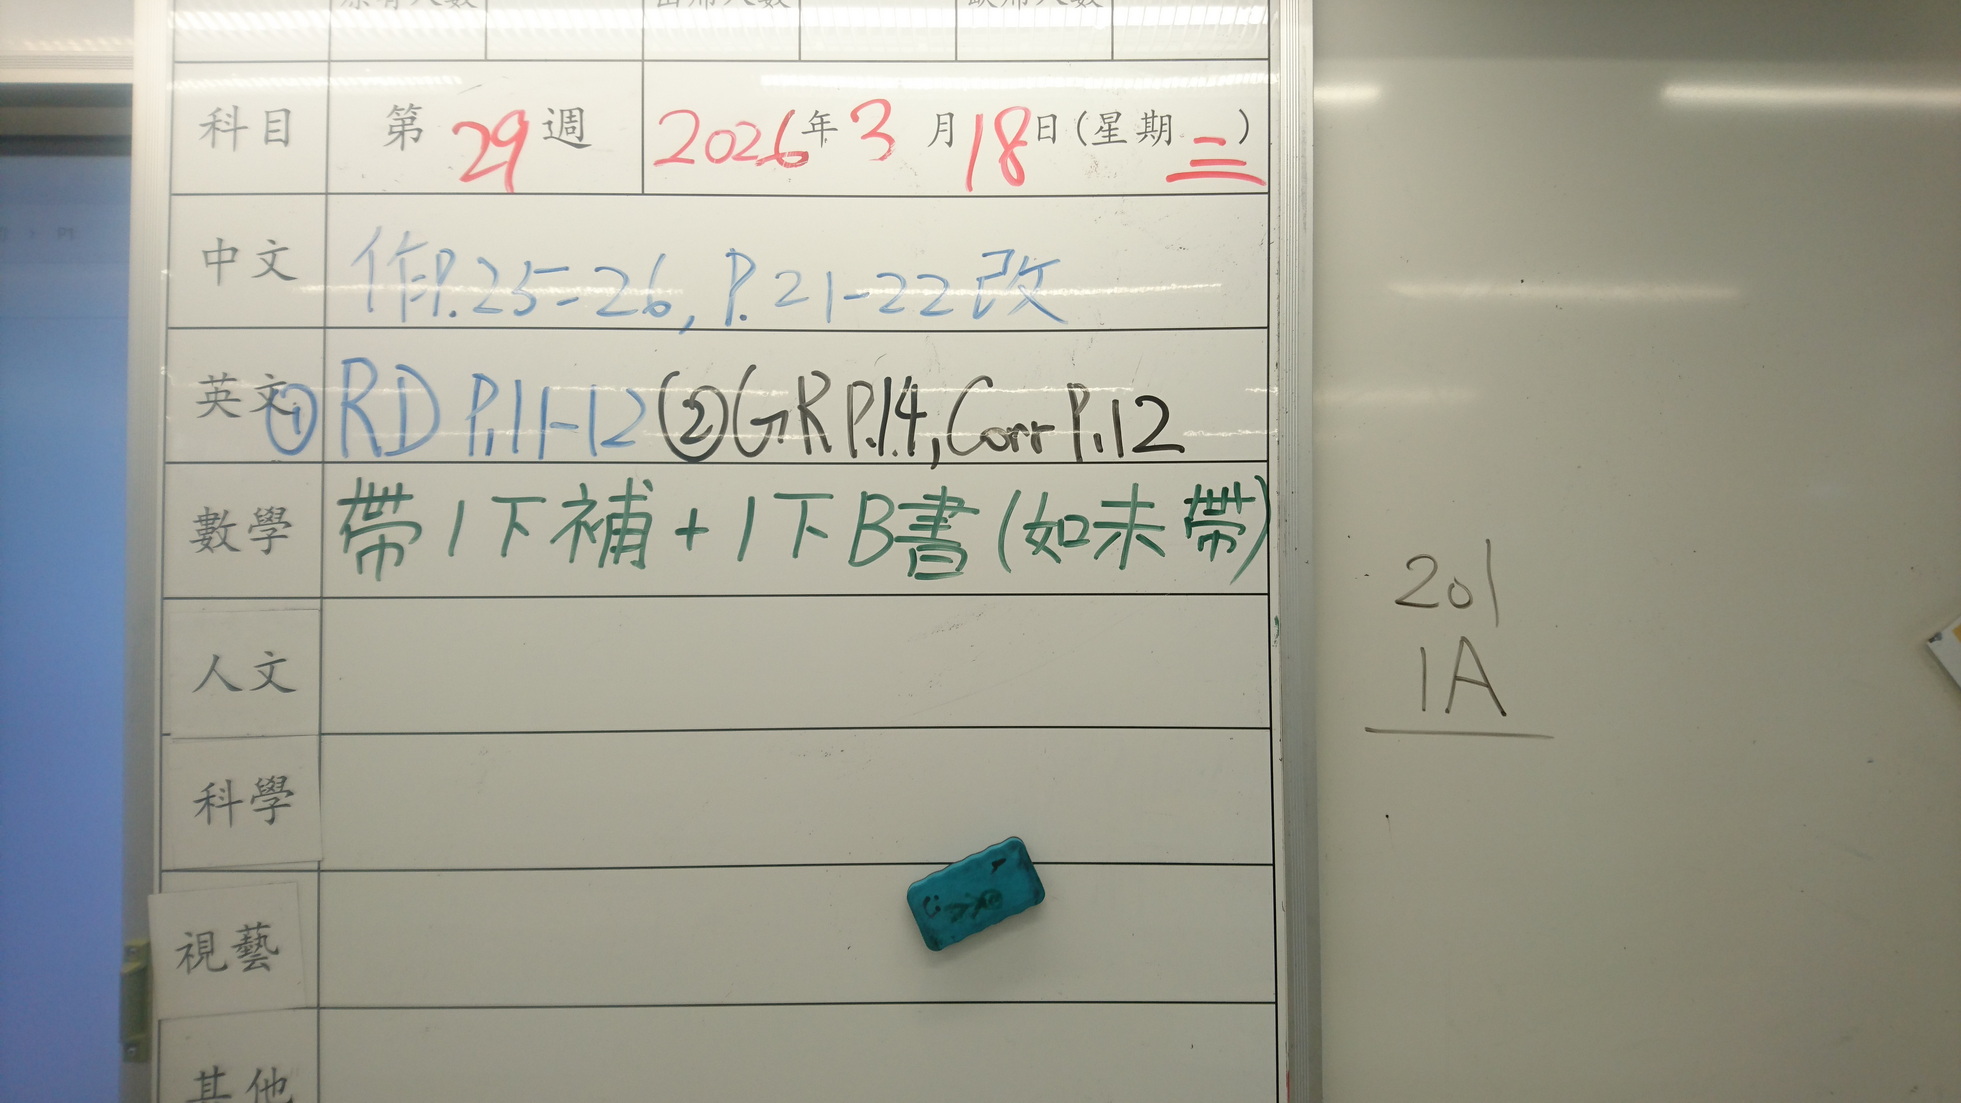 原有人數 出席人數 缺席人數
科目 第29週 2026年3月18日(星期三)
中文 作P.25-26, P.21-22改
英文 ①RD P.11-12 ②GR P.14, Corr P.12
數學 帶1下補+1下B書(如未帶)
人文
科學
視藝
其他
201
1A